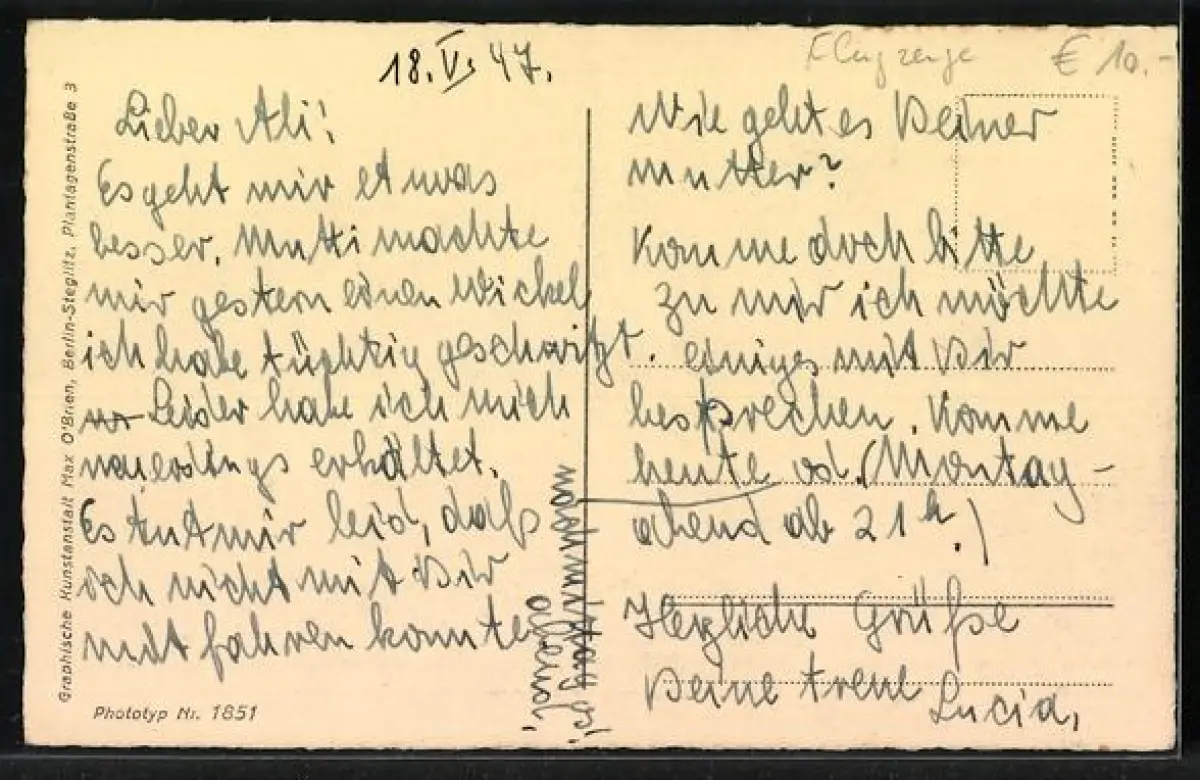 18. V. 47.
Lieber Ali!
Es geht mir etwas
besser. Mutti machte
mir gestern einen Wickel
ich habe tüchtig geschwitzt.
Leider habe ich mich
neuerdings erkältet.
Es tut mir leid, daß
ich nicht mit Dir
mit fahren konnte
Flugzeuge € 10.-
Wie geht es Deiner
Mutter?
Komme doch bitte
zu mir ich möchte
einiges mit Dir
besprechen. Komme
heute od. (Montag-
abend ab 21 h.)
nachmittags
abend
Herzliche Grüße
Deine treue Lucia,
Graphische Kunstanstalt Max O'Brien, Berlin-Steglitz, Plantagenstraße 3
Phototyp Nr. 1851